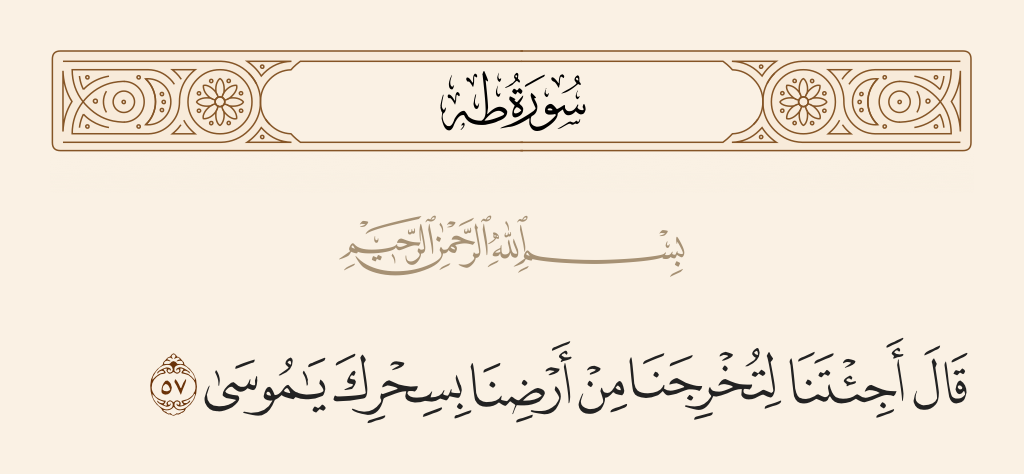 سُورَةُ طه
بِسْمِ ٱللَّهِ ٱلرَّحْمَٰنِ ٱلرَّحِيمِ
قَالَ أَجِئْتَنَا لِتُخْرِجَنَا مِنْ أَرْضِنَا بِسِحْرِكَ يَـٰمُوسَىٰ ٥٧